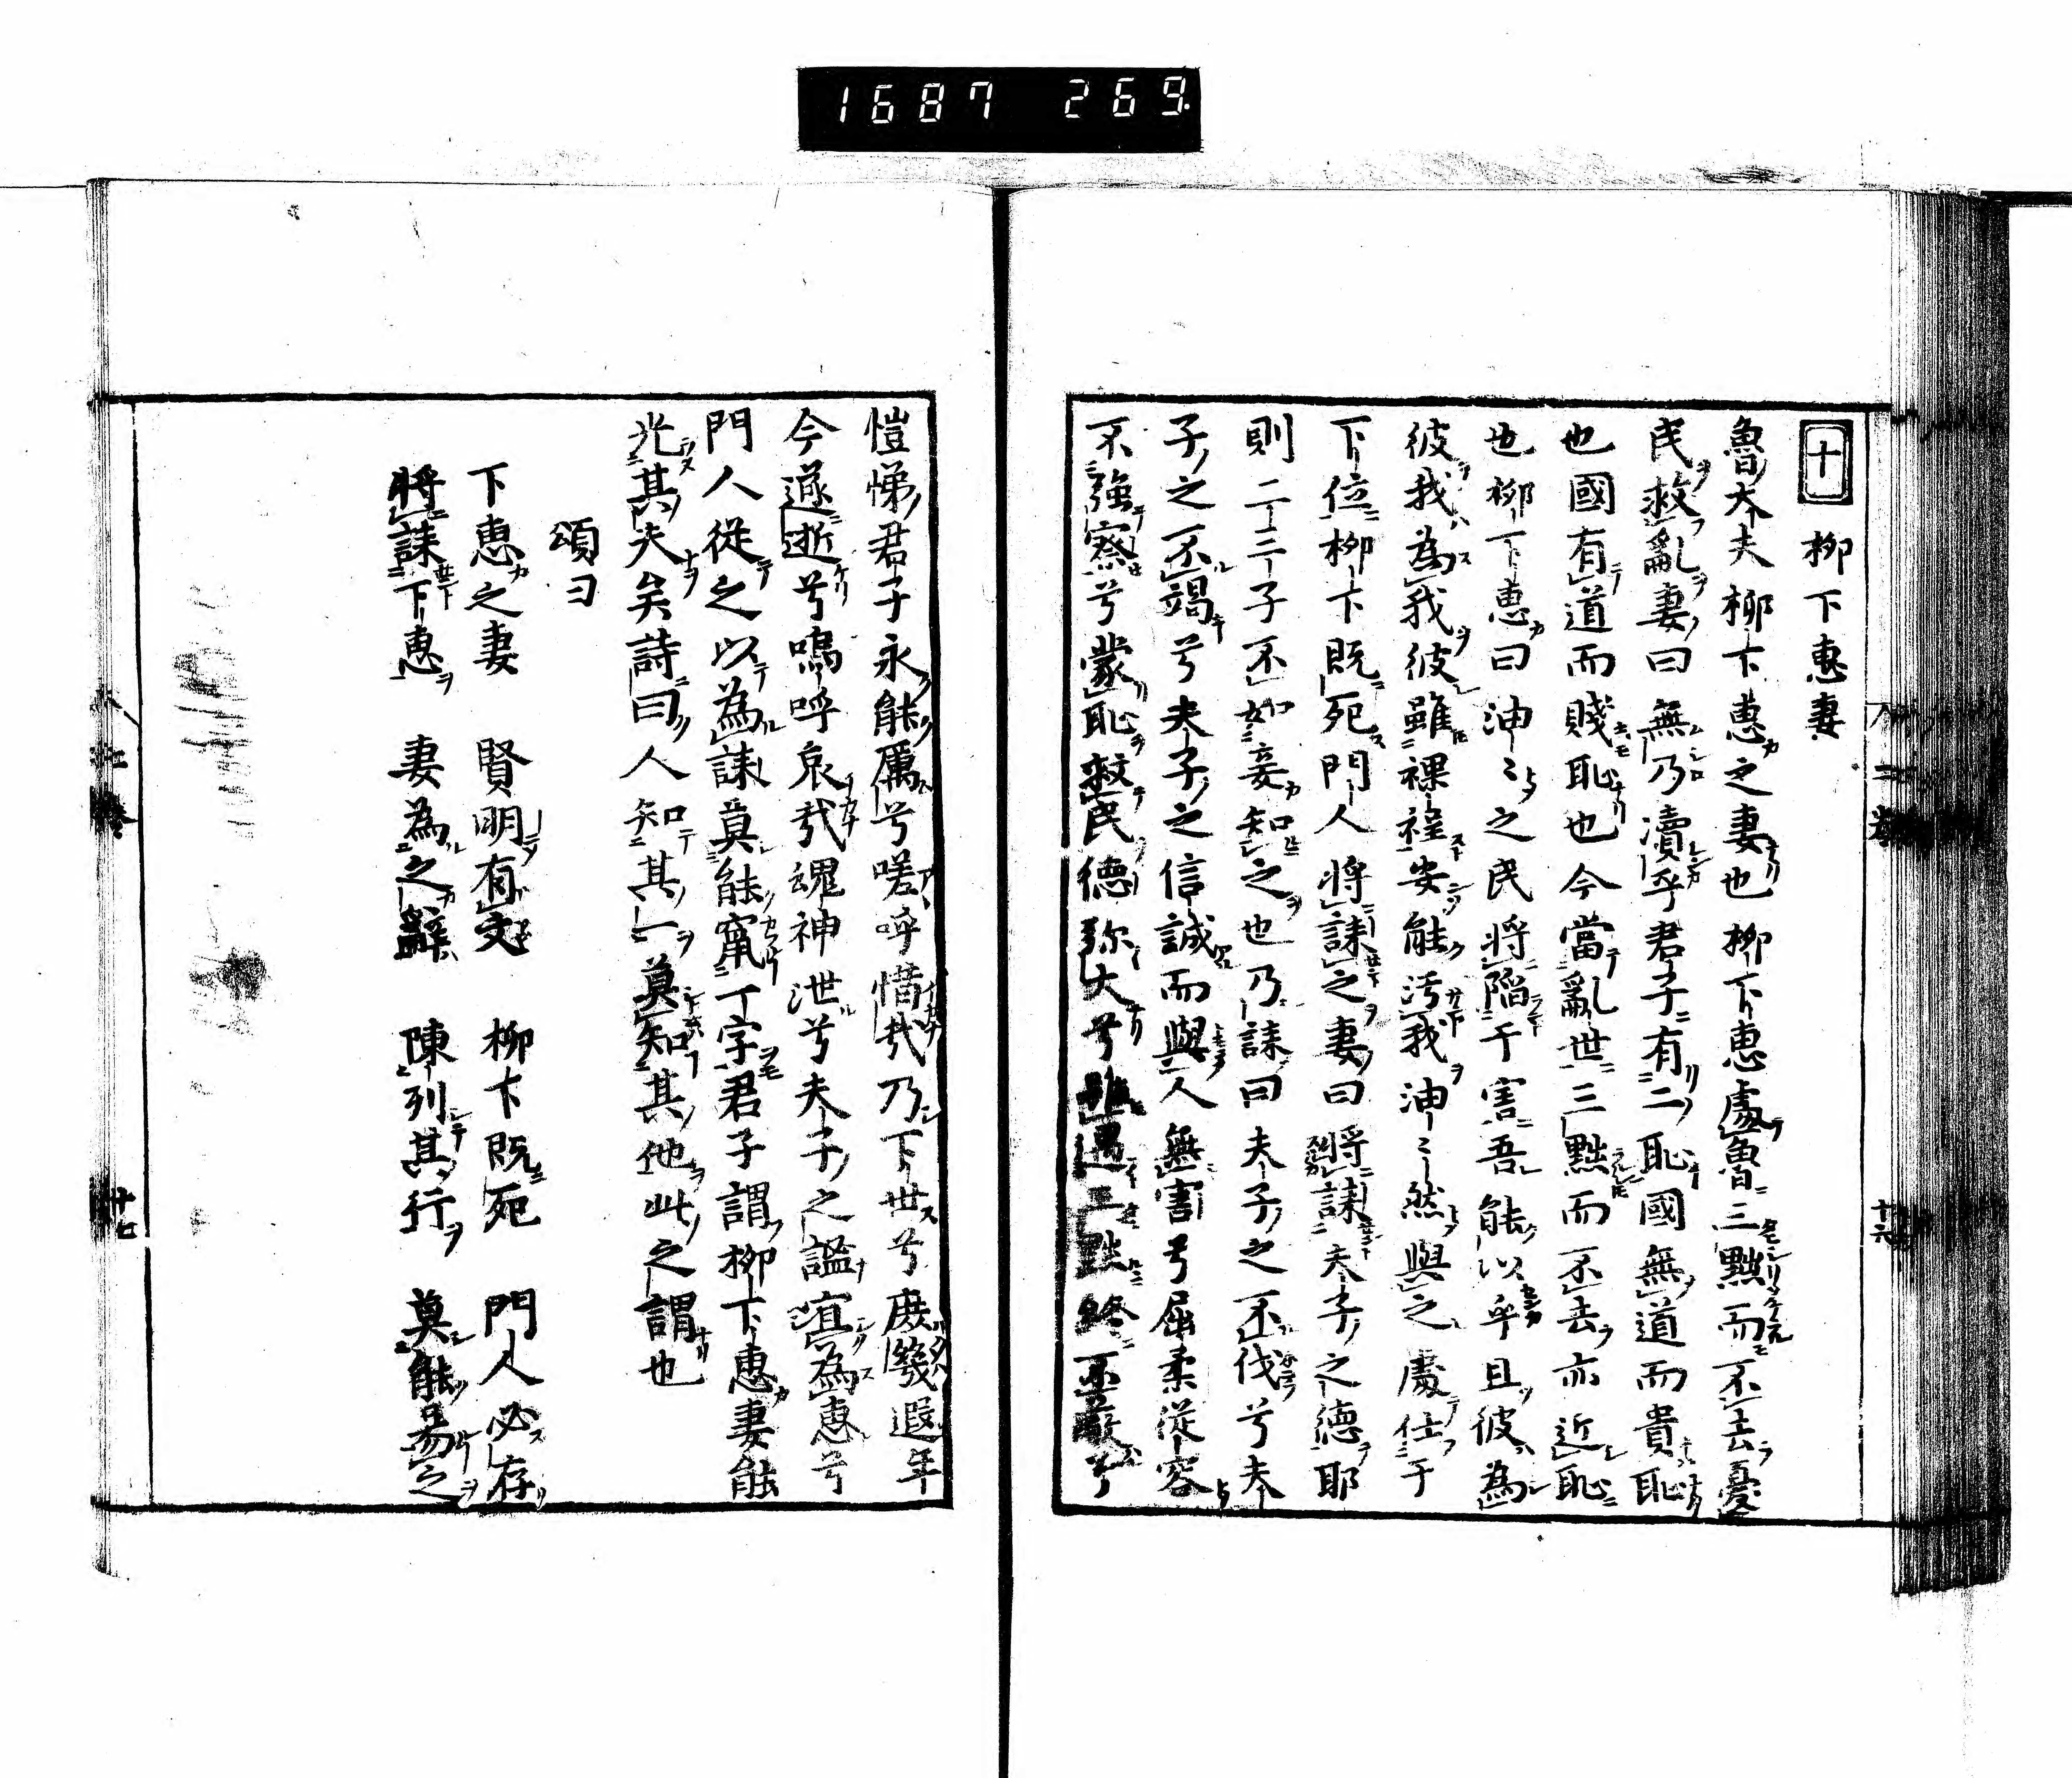 1687 269
十 柳下惠妻
魯大夫柳下惠之妻也柳下惠處魯三黜而不去憂
民救亂妻曰無乃瀆乎君子有二恥國無道而貴恥
也國有道而賤恥也今當亂世三黜而不去亦近恥
也柳下惠曰油〻之民將陷于害吾能以乎且彼為
彼我為我彼雖裸裎安能汚我油〻然與之處仕于
下位柳下既死門人將誄之妻曰將誄夫子之德耶
則二三子不如妾知之也乃誄曰夫子之不伐兮夫
子之不竭兮夫子之信誠而與人無害兮屈柔從容
不強察兮蒙恥救民德弥大兮雖遇三黜終不蔽兮
愷悌君子永能厲兮嗟呼惜哉乃下世兮庶幾遐年
今遂逝兮嗚呼哀哉魂神泄兮夫子之謚宜為惠兮
門人從之以為誄莫能竄一字君子謂柳下惠妻能
光其夫矣詩曰人知其一莫知其他此之謂也
頌曰
下惠之妻 賢明有文 柳下既死 門人必存
將誄下惠 妻為之辭 陳列其行 莫能易之